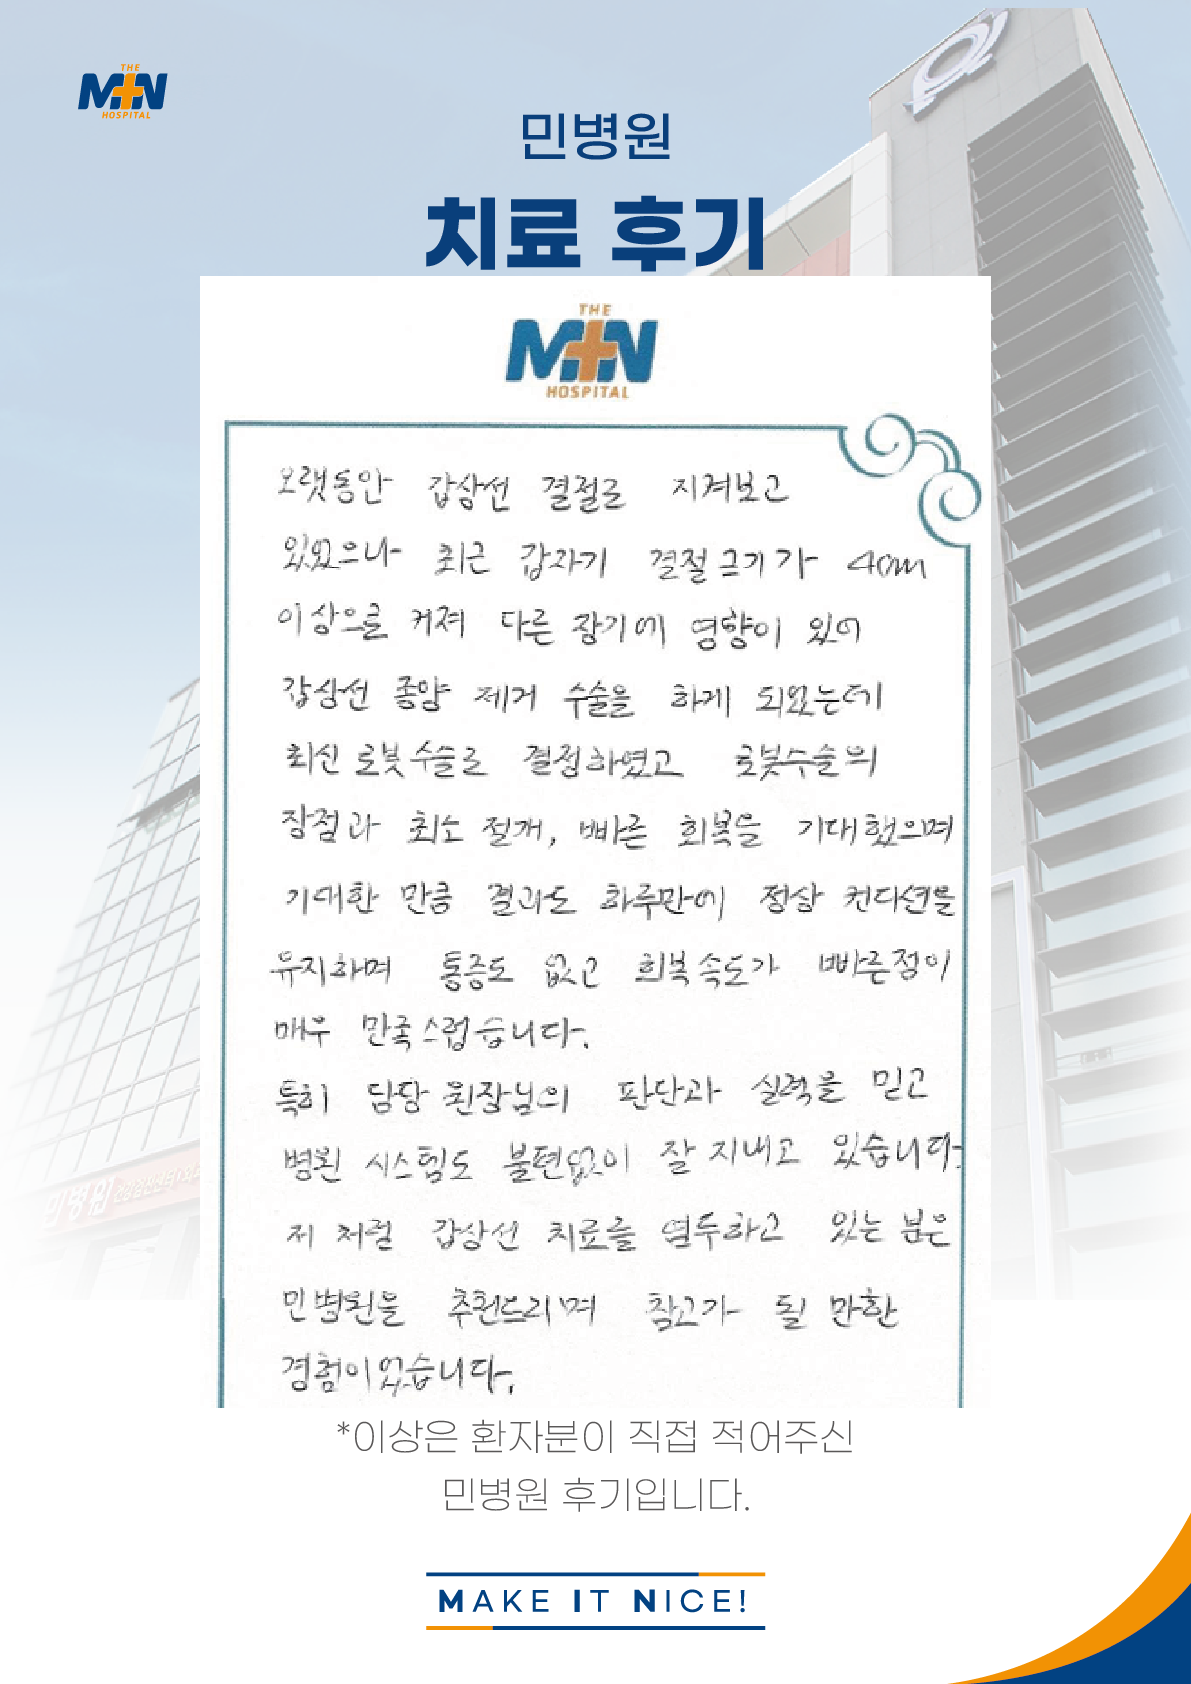 THE
MIN
HOSPITAL
민병원
치료 후기
THE
MIN
HOSPITAL
오랫동안 갑상선 결절로 지켜보고
있었으나 최근 갑자기 결절 크기가 4cm
이상으로 커져 다른 장기에 영향이 있어
갑상선 종양 제거 수술을 하게 되었는데
최신 로봇수술로 결정하였고 로봇수술의
장점과 최소 절개, 빠른 회복을 기대했으며
기대한 만큼 결과도 하루만에 정상 컨디션을
유지하며 통증도 없고 회복속도가 빠른점이
매우 만족스럽습니다.
특히 담당 원장님의 판단과 실력을 믿고
병원 시스템도 불편없이 잘 지내고 있습니다
저 처럼 갑상선 치료를 염두하고 있는 분은
민병원을 추천드리며 참고가 될 만한
경험이었습니다.
민병원
*이상은 환자분이 직접 적어주신
민병원 후기입니다.
MAKE IT NICE!